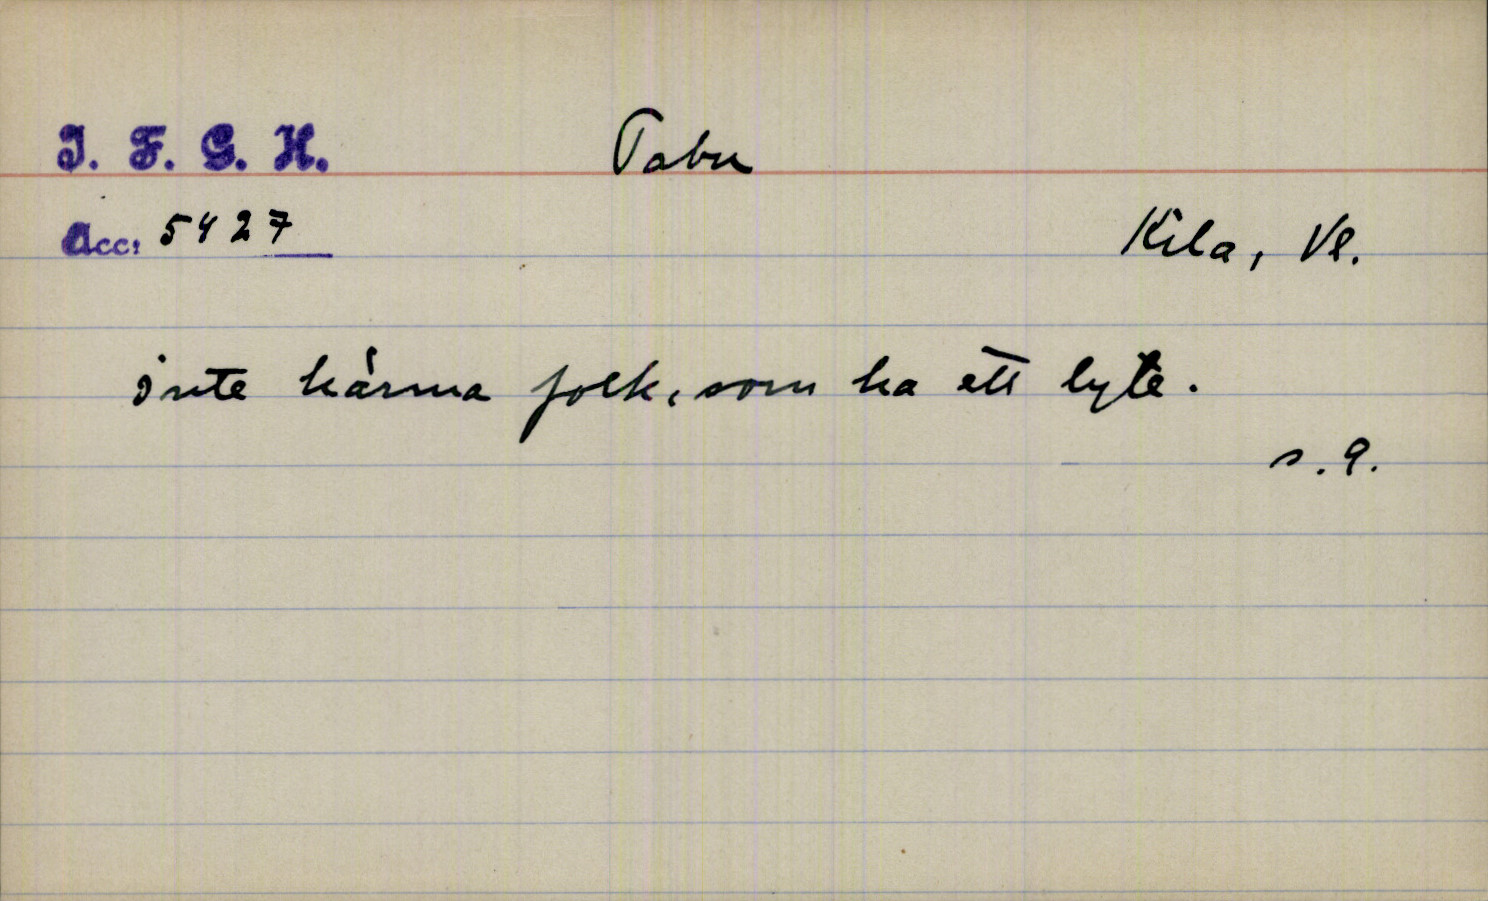 I. F. G. H.
Tabu
Acc: 5427
Kila, Vl.
inte härma folk, som ha ett lyte.
s. 9.